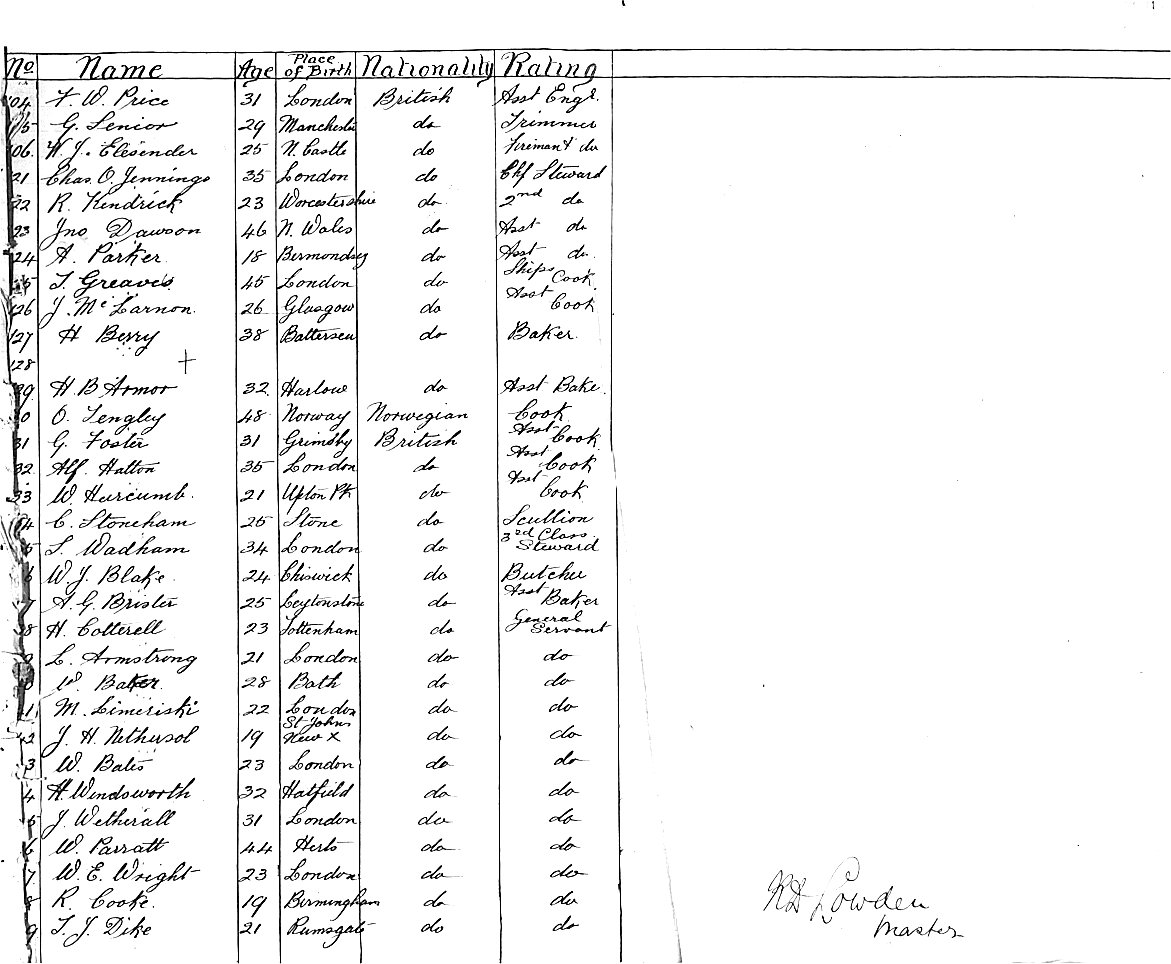 No Name Age Place of Birth Nationality Rating
104 F. W. Price 31 London British Asst Engr.
5 G. Senior 29 Manchester do Trimmer
106. W. J. Elesender 25 N. Castle do Fireman & do
21 Chas. O. Jennings 35 London do Chf Steward
22 R. Kendrick 23 Worcestershire do 2nd do
23 Jno Dawson 46 N. Wales do Asst do
24 A. Parker 18 Bermondsey do Asst do.
5 T. Greaves 45 London do Ships Cook
126 J. McLarnon. 26 Glasgow do Asst Cook
127 H Berry 38 Battersea do Baker.
128 +
29 H B Armor 32 Harlow do Asst Bake.
0 O. Tengley 48 Norway Norwegian Cook
31 G. Foster 31 Grimsby British Asst Cook
32 Alf. Halton 35 London do Asst Cook
33 W. Harcumb. 21 Upton Pk do Asst Cook
34 C. Stoneham 25 Stone do Scullion
5 T. Wadham 34 London do 3rd Class Steward
6 W. J. Blake. 24 Chiswick do Butcher
7 A. G. Brister 25 Leytonstone do Asst Baker
38 H. Cotterell 23 Tottenham do General Servant
L. Armstrong 21 London do do
W. Baker. 28 Bath do do
1 M. Limeriski 22 London do do
42 J. H. Nethersol 19 St Johns New X do do
3 W. Bates 23 London do do
4 H. Wendsworth 32 Hatfield do do
5 J. Wetherall 31 London do do
6 W. Parratt 44 Herts do do
7 W. E. Wright 23 London do do
8 R. Cooke. 19 Birmingham do do
9 T. J. Dike 21 Ramsgate do do
RD Lowden
Master